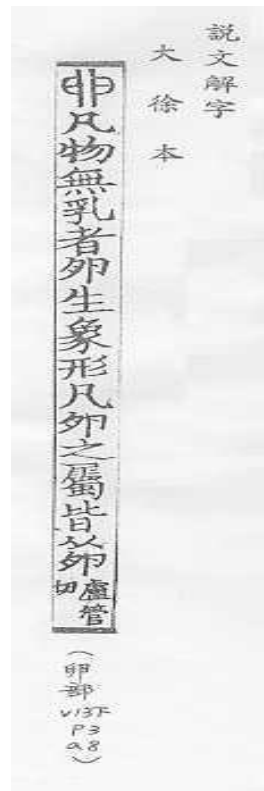 説文解字
大徐本
卵凡物無乳者卵生象形凡卵之屬皆从卵盧管切
（卵部
v13下
P3
a8）